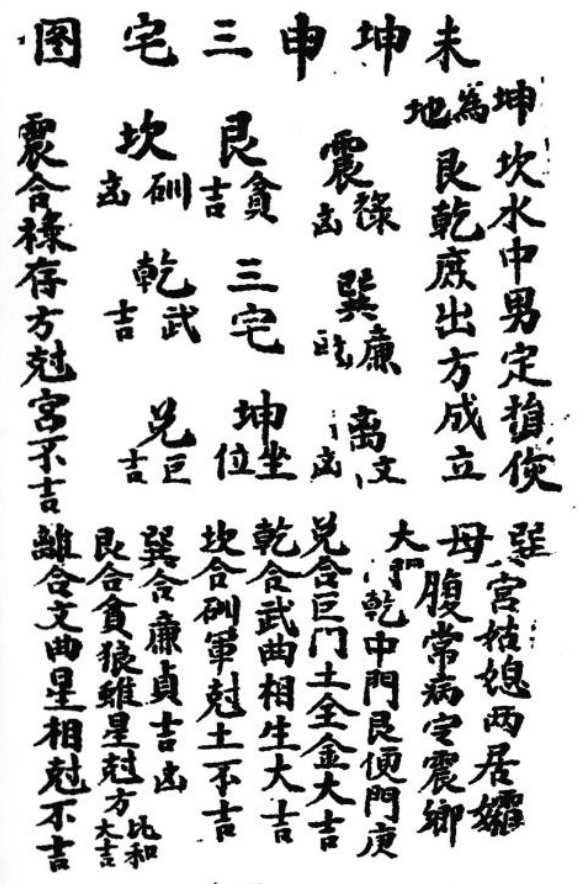 未坤申三宅图
坤為地
坎水中男定損
艮乾庶出方成立
震祿凶
巽廉
离文凶
艮貪吉
三宅
坤坐位
坎破凶
乾武吉
兑巨吉
震合祿存方尅宮不吉
巽宮姑媳两居孀
母腹常病定震鄉
大門乾中門艮便門庚
兑合巨门土全金大吉
乾合武曲相生大吉
坎合破軍尅土不吉
巽合廉貞吉凶
艮合貪狼雖星尅方比和大吉
離合文曲星相尅不吉